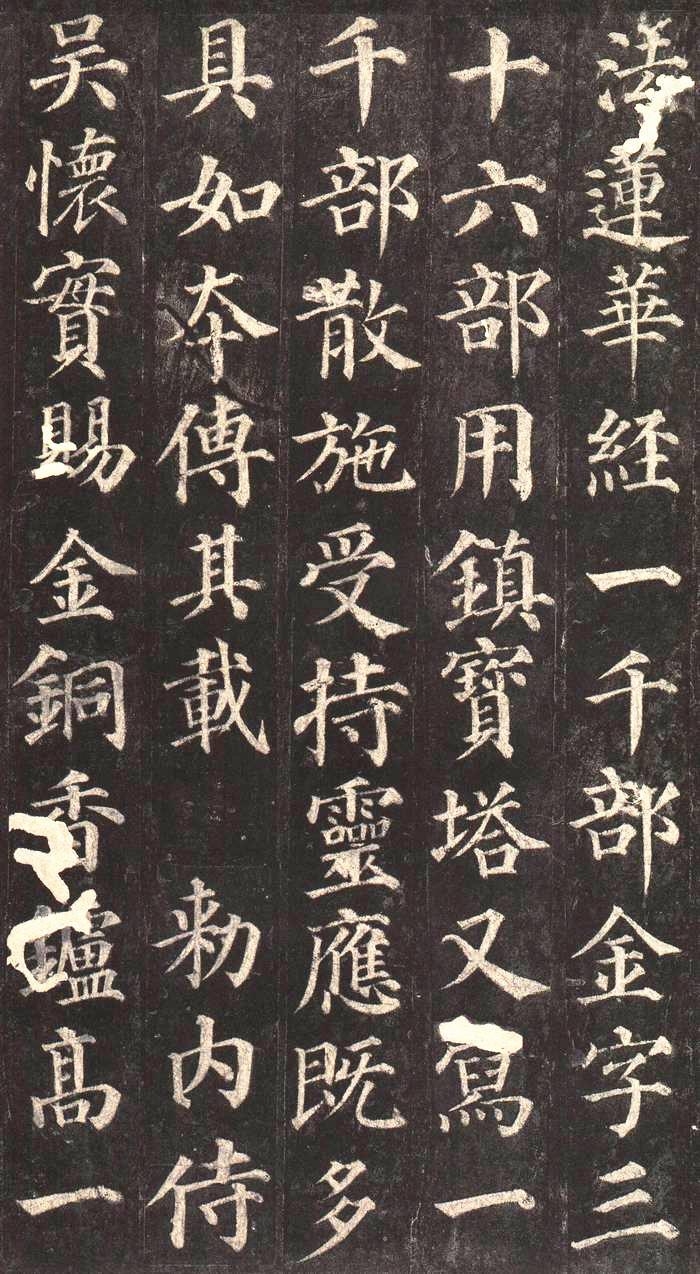 法蓮華経一千部金字三
十六部用鎮寶塔又寫一
千部散施受持靈應既多
具如夲傳其載 勅内侍
吳懷實賜金銅香鑪髙一